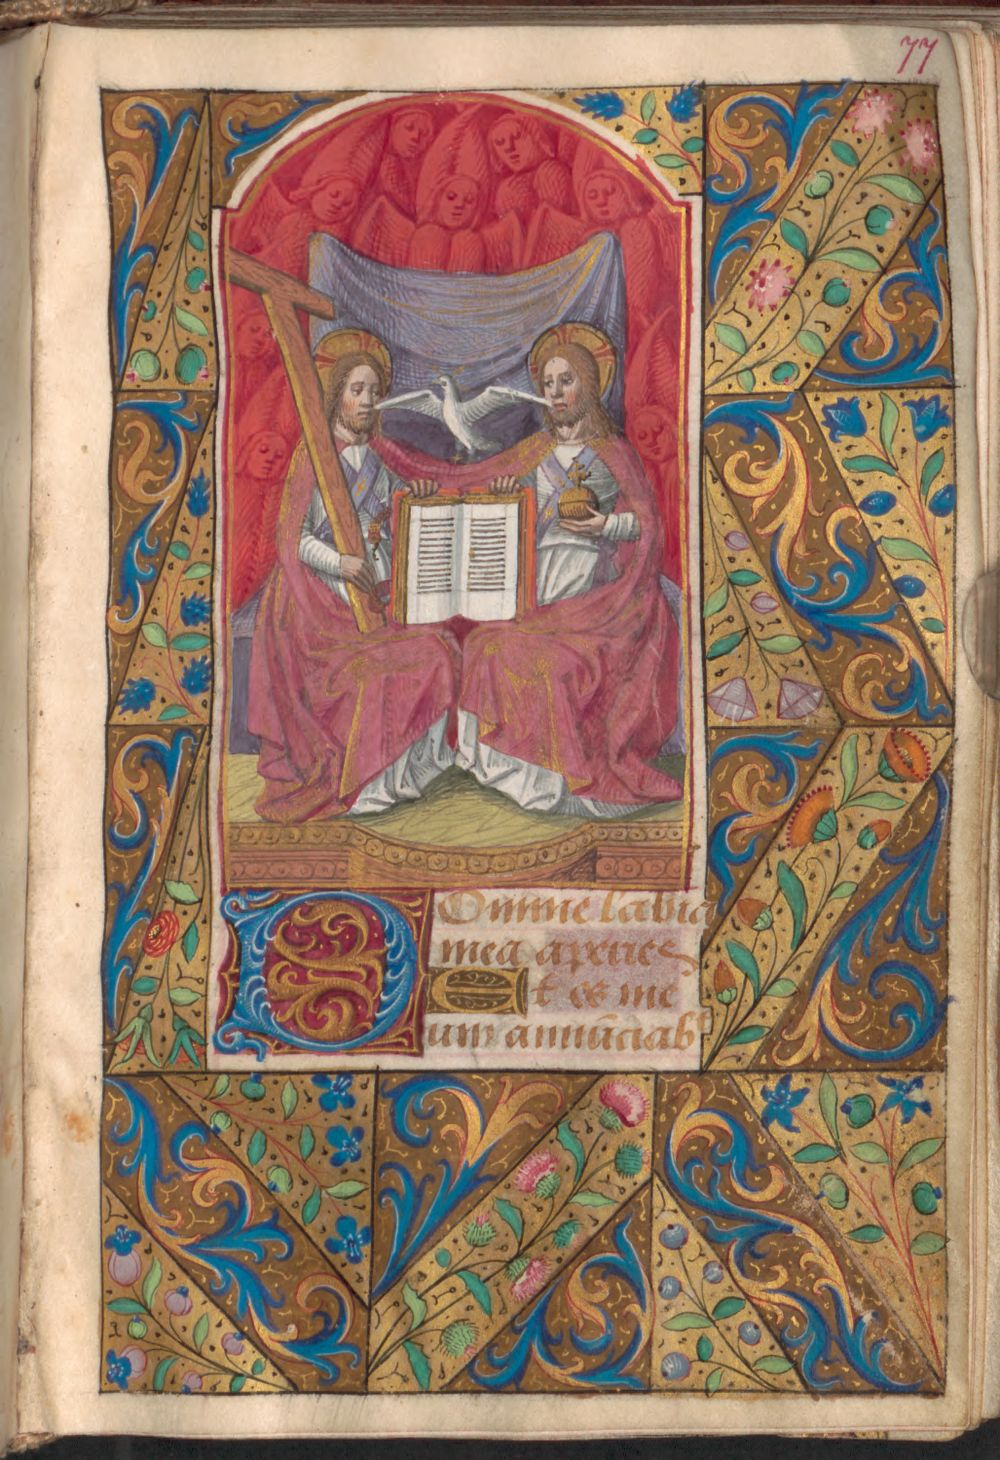 77
Domine labia
mea aperies
Et os me
um annūciabt